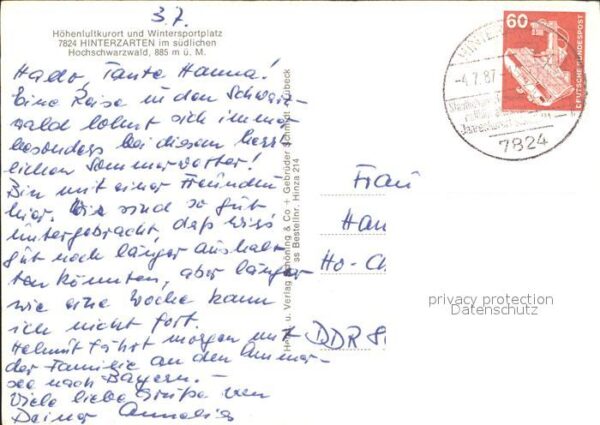 3.7.
Höhenluftkurort und Wintersportplatz
7824 HINTERZARTEN im südlichen
Hochschwarzwald, 885 m ü. M.
Hallo, Tante Hanna!
Eine Reise in den Schwarz-
wald lohnt sich immer
besonders bei diesem herr-
lichen Sommerwetter!
Bin mit einer Freundin
hier. Wir sind so gut
untergebracht, daß wir's
gut noch länger aushal-
ten könnten, aber länger
wie eine Woche kann
ich nicht fort.
Helmut fährt morgen mit
der Familie an den Ammer-
see nach Bayern. -
Viele liebe Grüße von
Deiner Annelies
u. Verlag Schöning & Co + Gebrüder Schmidt Lübeck
Bestellnr. Hinza 214
60
DEUTSCHE BUNDESPOST
-4.7.87
7824
Frau
Han
Ho-Ch
DDR 8
privacy protection
Datenschutz